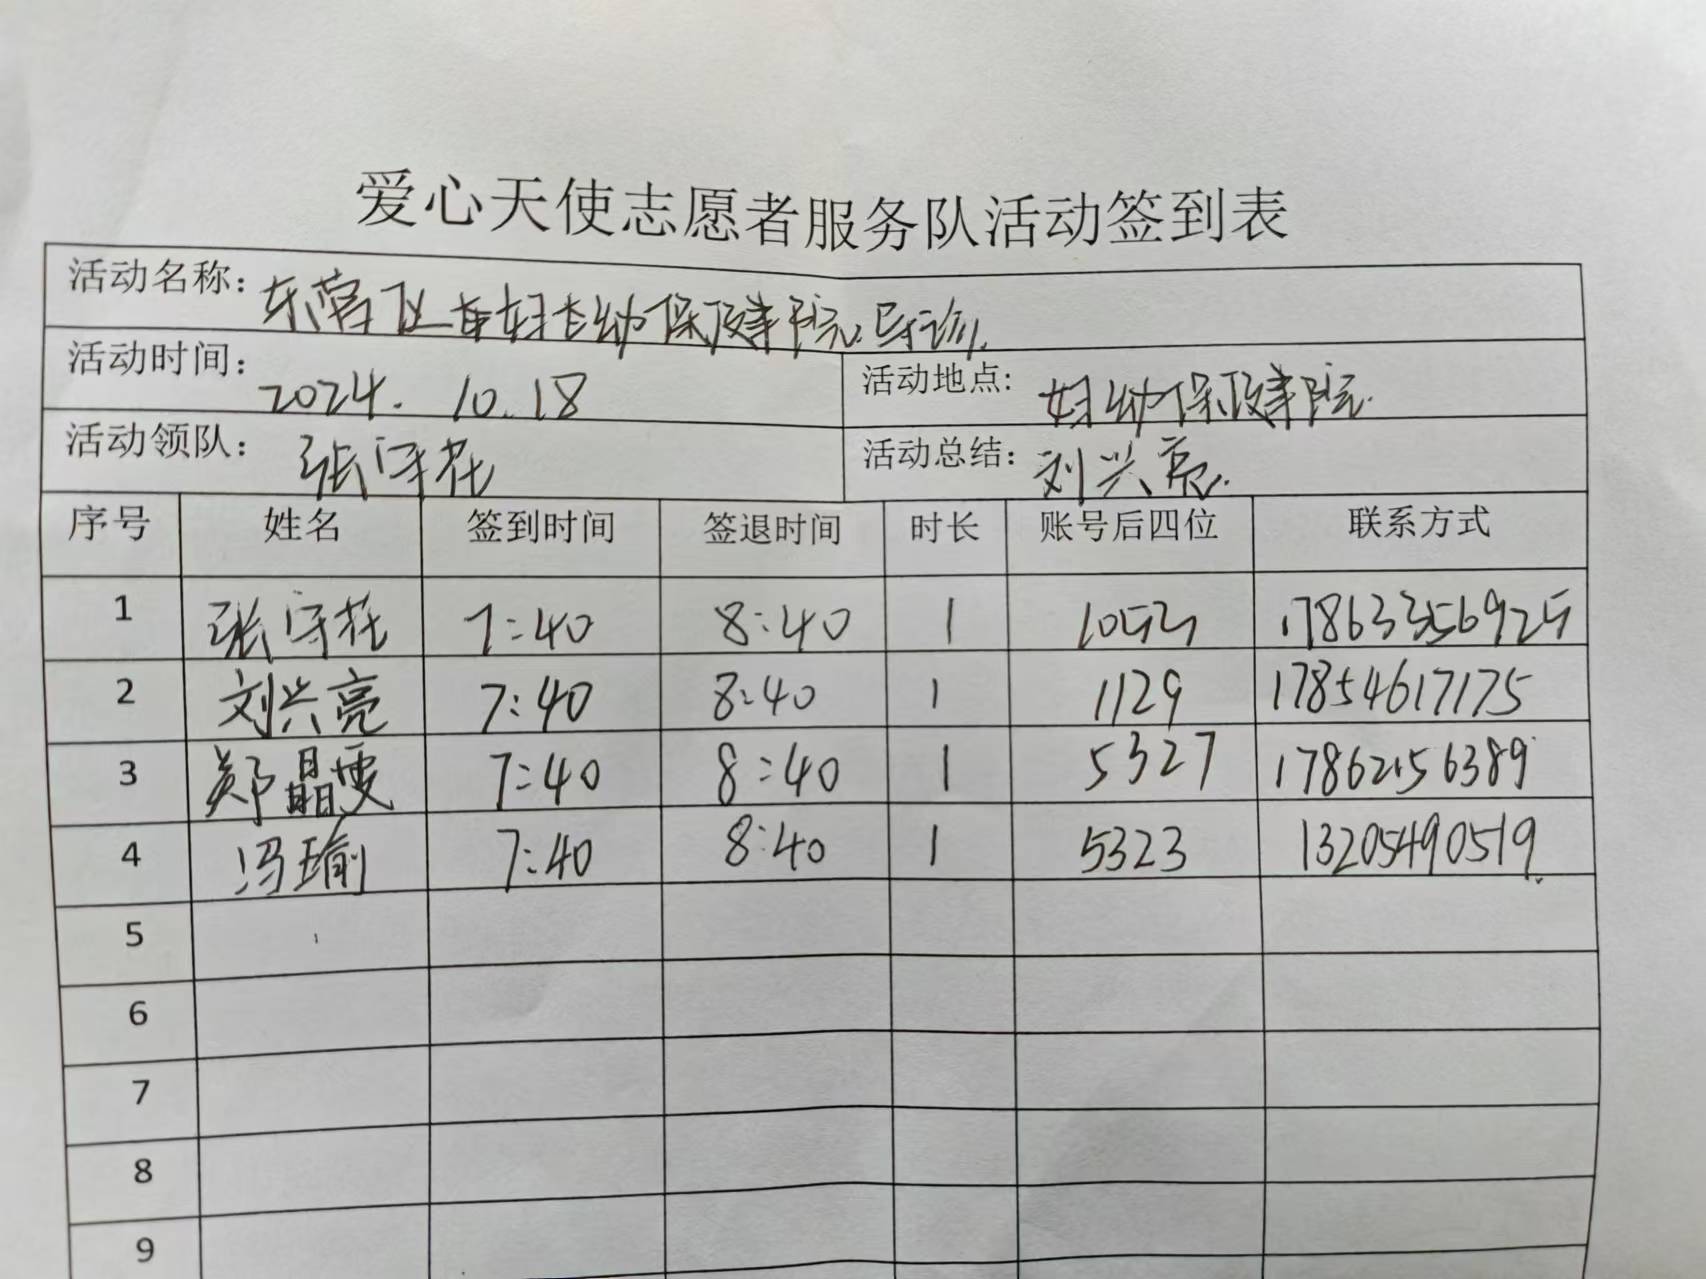 爱心天使志愿者服务队活动签到表
活动名称: 东营区妇幼保健院导诊
活动时间: 2024. 10. 18 活动地点: 妇幼保健院
活动领队: 张守花 活动总结: 刘兴亮
序号 姓名 签到时间 签退时间 时长 账号后四位 联系方式
1 张守花 7:40 8:40 1
2 刘兴亮 7:40 8:40 1 1129 17854617175
3 郑晶雯 7:40 8:40 1 5327 17862156389
4 冯瑜 7:40 8:40 1 5323 13205490519
5
6
7
8
9